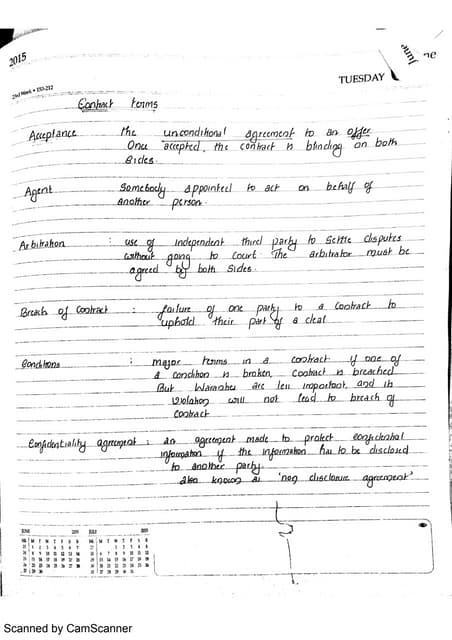 2015
23rd Week • 153-212
TUESDAY
Contract terms
Acceptance the unconditional agreement to an offer
Once accepted, the contract is binding on both
sides.
Agent Somebody appointed to act on behalf of
another person.
Arbitration : use of independent third party to settle disputes
without going to court The arbitrator must be
agreed by both sides.
Breach of Contract : failure of one party to a contract to
uphold their part of a deal
Conditions : major terms in a contract if one of
a condition is broken, contract is breached
But Warranties are less important, and its
violation will not lead to breach of
contract
Confidentiality agreement : an agreement made to protect confidential
information if the information has to be disclosed
to another party.
also known as 'non disclosure agreement'
JUNE 2015 JULY 2015
Scanned by CamScanner